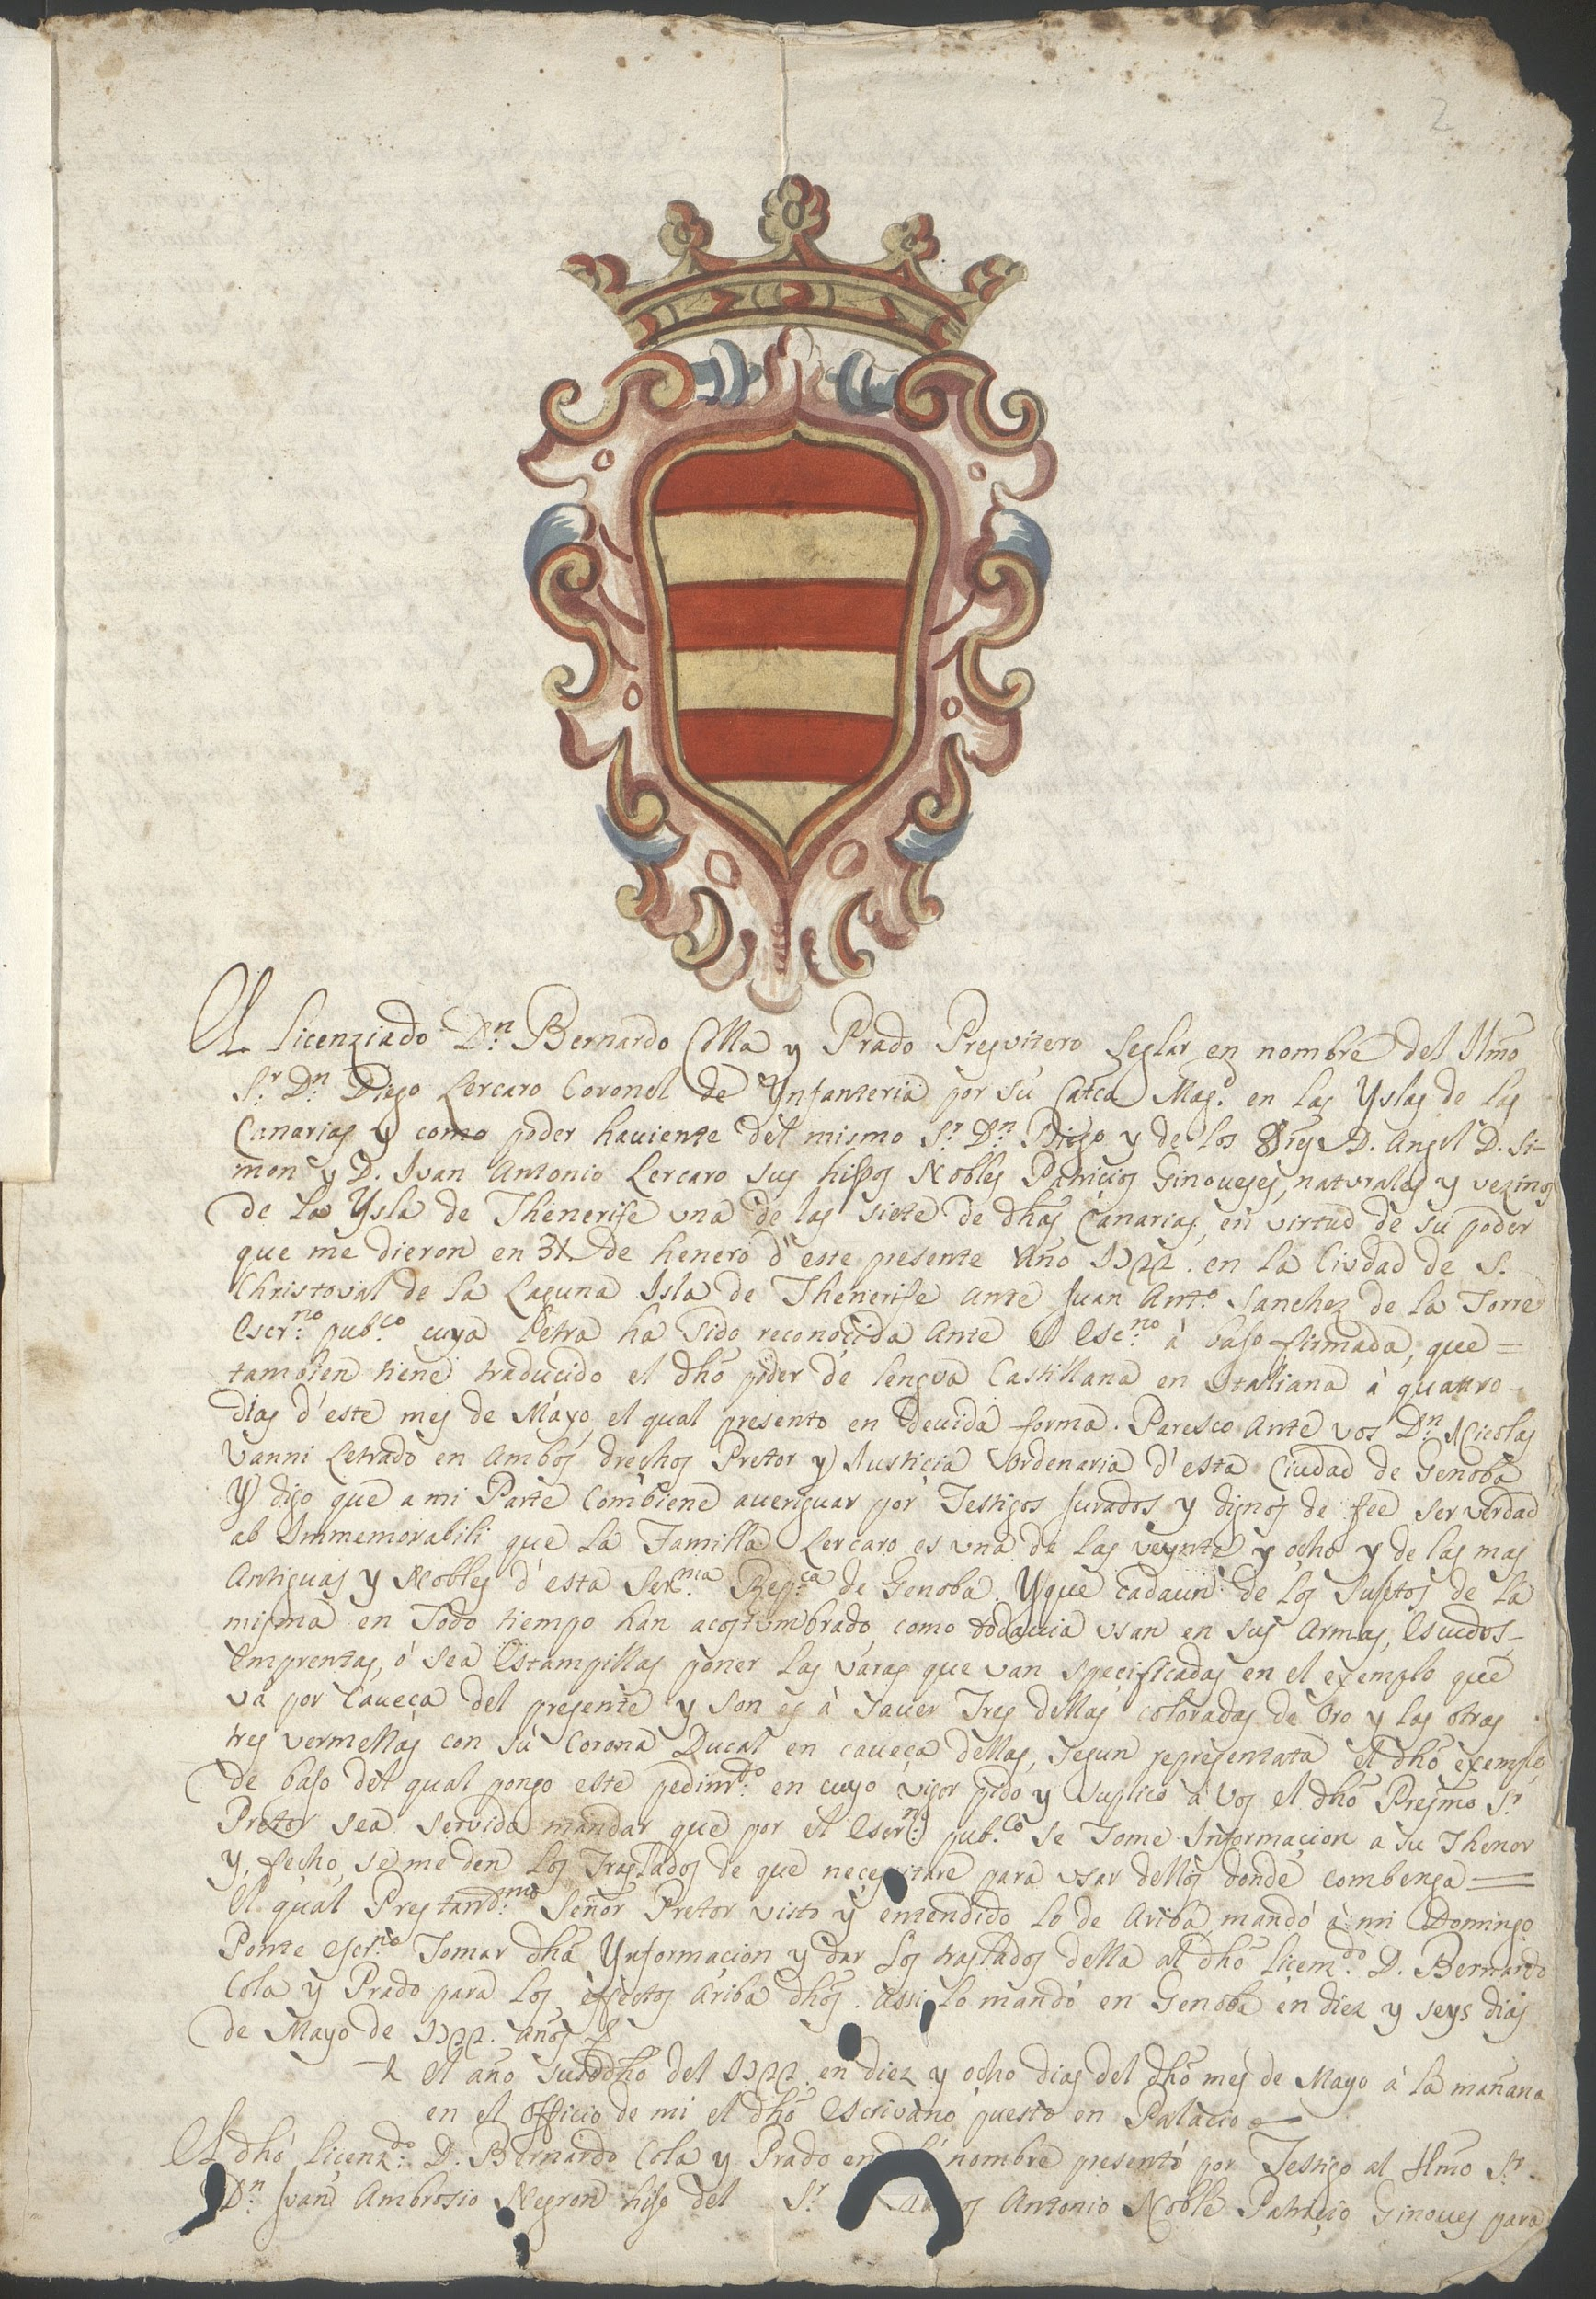 2
El Licenziado D.n Bernardo Colla y Prado Presvitero seglar en nombre del Illmo
S.r D.n Diego Lercaro Coronel de Ynfanteria por su Catca Mag.d en las Yslas de las
Canarias y como poder haviente del mismo S.r D.n Diego y de los Sres D. Angel D. Si-
mon y D. Ivan Antonio Lercaro sus hijos Nobles Patricios Ginoveses, naturales y vezinos
de La Ysla de Thenerife vna de las siete de dhas Canarias, en virtud de su poder
que me dieron en 31 de henero d'este presente Año 1722. en la Civdad de S.
Christoval de la Laguna Isla de Thenerife Ante Juan Ant.o Sanchez de la Torre
Escr.no pub.co cuya letra ha sido reconoçida Ante el Esc.no à bajo firmada, que =
tambien tiene traducido el dho poder de lengva Castillana en Italiana à quattro-
dias d'este mes de Mayo, el qual presento en devida forma. Paresco Ante vos D.n Nicolas
Vanni Letrado en Ambos drechos Pretor y Iusticia Ordenaria d'esta Ciudad de Genoba
Y digo que a mi Parte Combiene averiguar por Testigos Jurados y dignos de fee ser verdad
ab Immemorabili que La Familla Lercaro es vna de las veynte y ocho y de las mas
Antiguas y Nobles d'esta Ser.ma Rep.ca de Genoba. Y que cadaun de los Sujetos de la
misma en Todo tiempo han acostumbrado, como todauia vsan en sus Armas, Escudos-
Emprentas, ó sea Estampillas poner las varas que van specificadas en el exemplo que
va por Caueça del presente y son es à saver Tres dellas coloradas de Oro y las otras
tres vermellas con su Corona Ducal en caueça dellas, segun representata el dho exemplo
de bajo del qual pongo este pedim.to en cuyo vigor pido y suplico à Vos el dho Presmo S.r
Pretor sea servido mandar que por el Escr.no pub.co se Tome Informaçion a su Thenor
y, fecho, se me den los Traslados de que necesitare para vsar dellos donde combenga =
El qual Prestand.mo Señor Pretor visto y entendido lo de Ariba mandó à mi Domingo
Ponte escr.no Tomar dha Ynformaçion y dar los traslados della al dho Licenz.do D. Bernardo
Cola y Prado para los èffectos Ariba dhos. Assi lo mandò en Genoba en diez y seys dias
de Mayo de 1722. Años
El año sutodho del 1722. en diez y ocho dias del dho mes de Mayo à la mañana
en el officio de mi el dho Escrivano puesto en Palacio
El dhò Liçenz.do D. Bernardo Cola y Prado en nombre presentò por Testigo al Illmo S.r
D.n Ivan Ambrosio Negron hijo del S.r Antonio Noble Patriçio Ginoves para